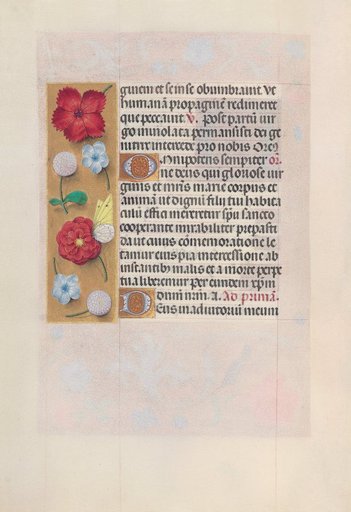 guinem et se in se obumbravit. Ut
humanā propaginē redimeret
que peccavit. V. Post partū vir
go inviolata permansisti. dei ge
nitrix intercede pro nobis. Orō.
Omnipotens sempiter or̄.
ne deus qui gloriose vir
ginis et mr̄is marie corpus et
animā ut dignū filij tui habita
culū effici mereretur spū sancto
cooperante mirabiliter preparasti
da ut cuius cōmemoratione le
tamur eius pia intercessione ab
instantibus malis et a morte perpe
tua liberemur per eundem xp̄m
dnīm nrm̄. A. Ad primā.
Deus in adiutoriū meum